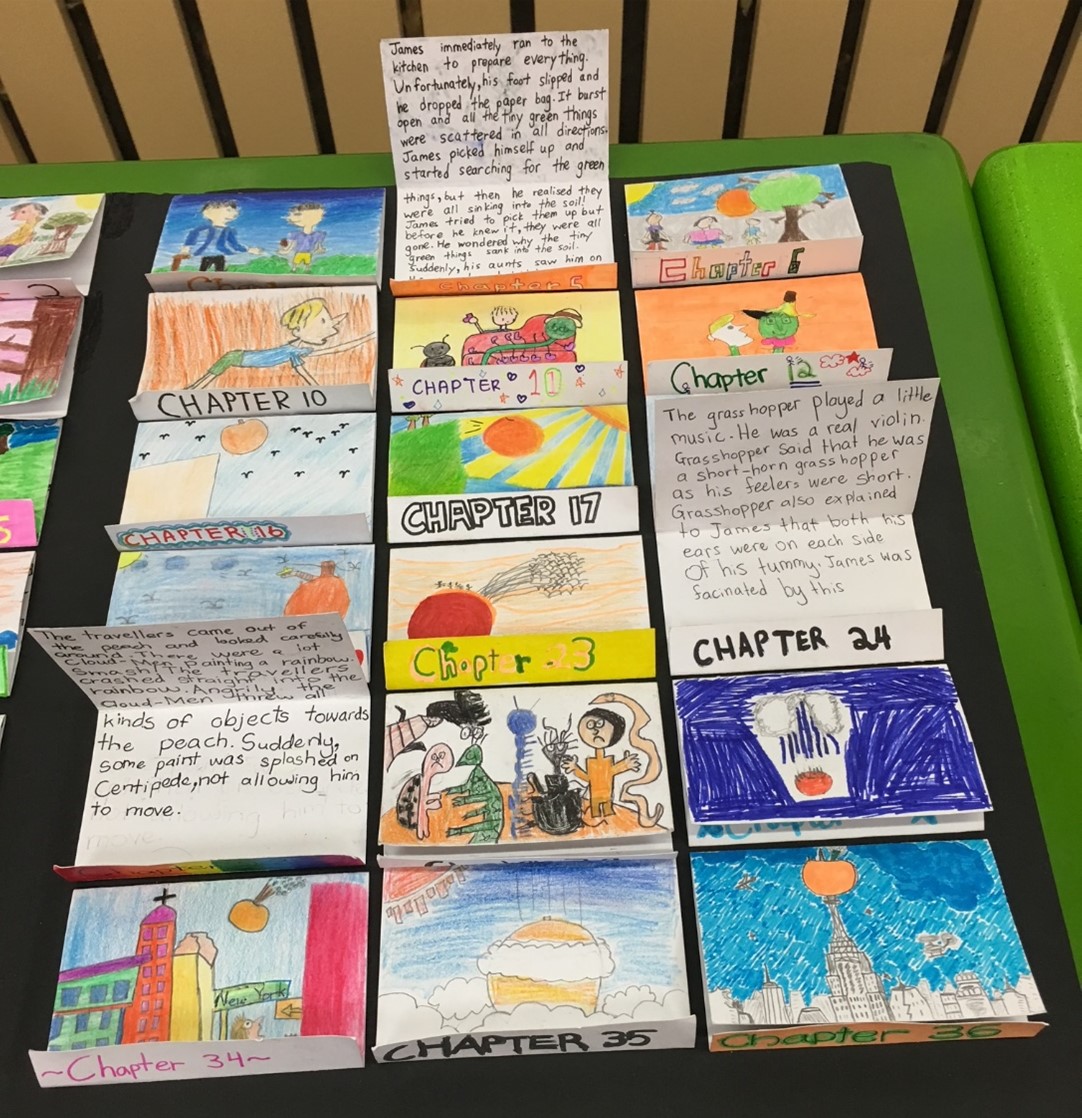 James immediately ran to the
kitchen to prepare everything.
Unfortunately, his foot slipped and
he dropped the paper bag. It burst
open and all the tiny green things
were scattered in all directions.
James picked himself up and
started searching for the green
things, but then he realised they
were all sinking into the soil!
James tried to pick them up but
before he knew it, they were all
gone. He wondered why the tiny
green things sank into the soil.
Suddenly, his aunts saw him on
Chapter 5
Chapter 6
CHAPTER 10
CHAPTER 11
Chapter 12
5
CHAPTER 16
CHAPTER 17
The grasshopper played a little
music. He was a real violin.
Grasshopper said that he was
a short-horn grasshopper
as his feelers were short.
Grasshopper also explained
to James that both his
ears were on each side
of his tummy. James was
facinated by this
Chapter 23
CHAPTER 24
The travellers came out of
the peach and looked carefully
around. There were a lot
Cloud-Men painting a rainbow.
Smash! The travellers
crashed straight into the
rainbow. Angrily, the
Cloud-Men threw all
kinds of objects towards
the peach. Suddenly,
some paint was splashed on
Centipede, not allowing him
to move.
Chapter
New York
~Chapter 34~
CHAPTER 35
Chapter 36